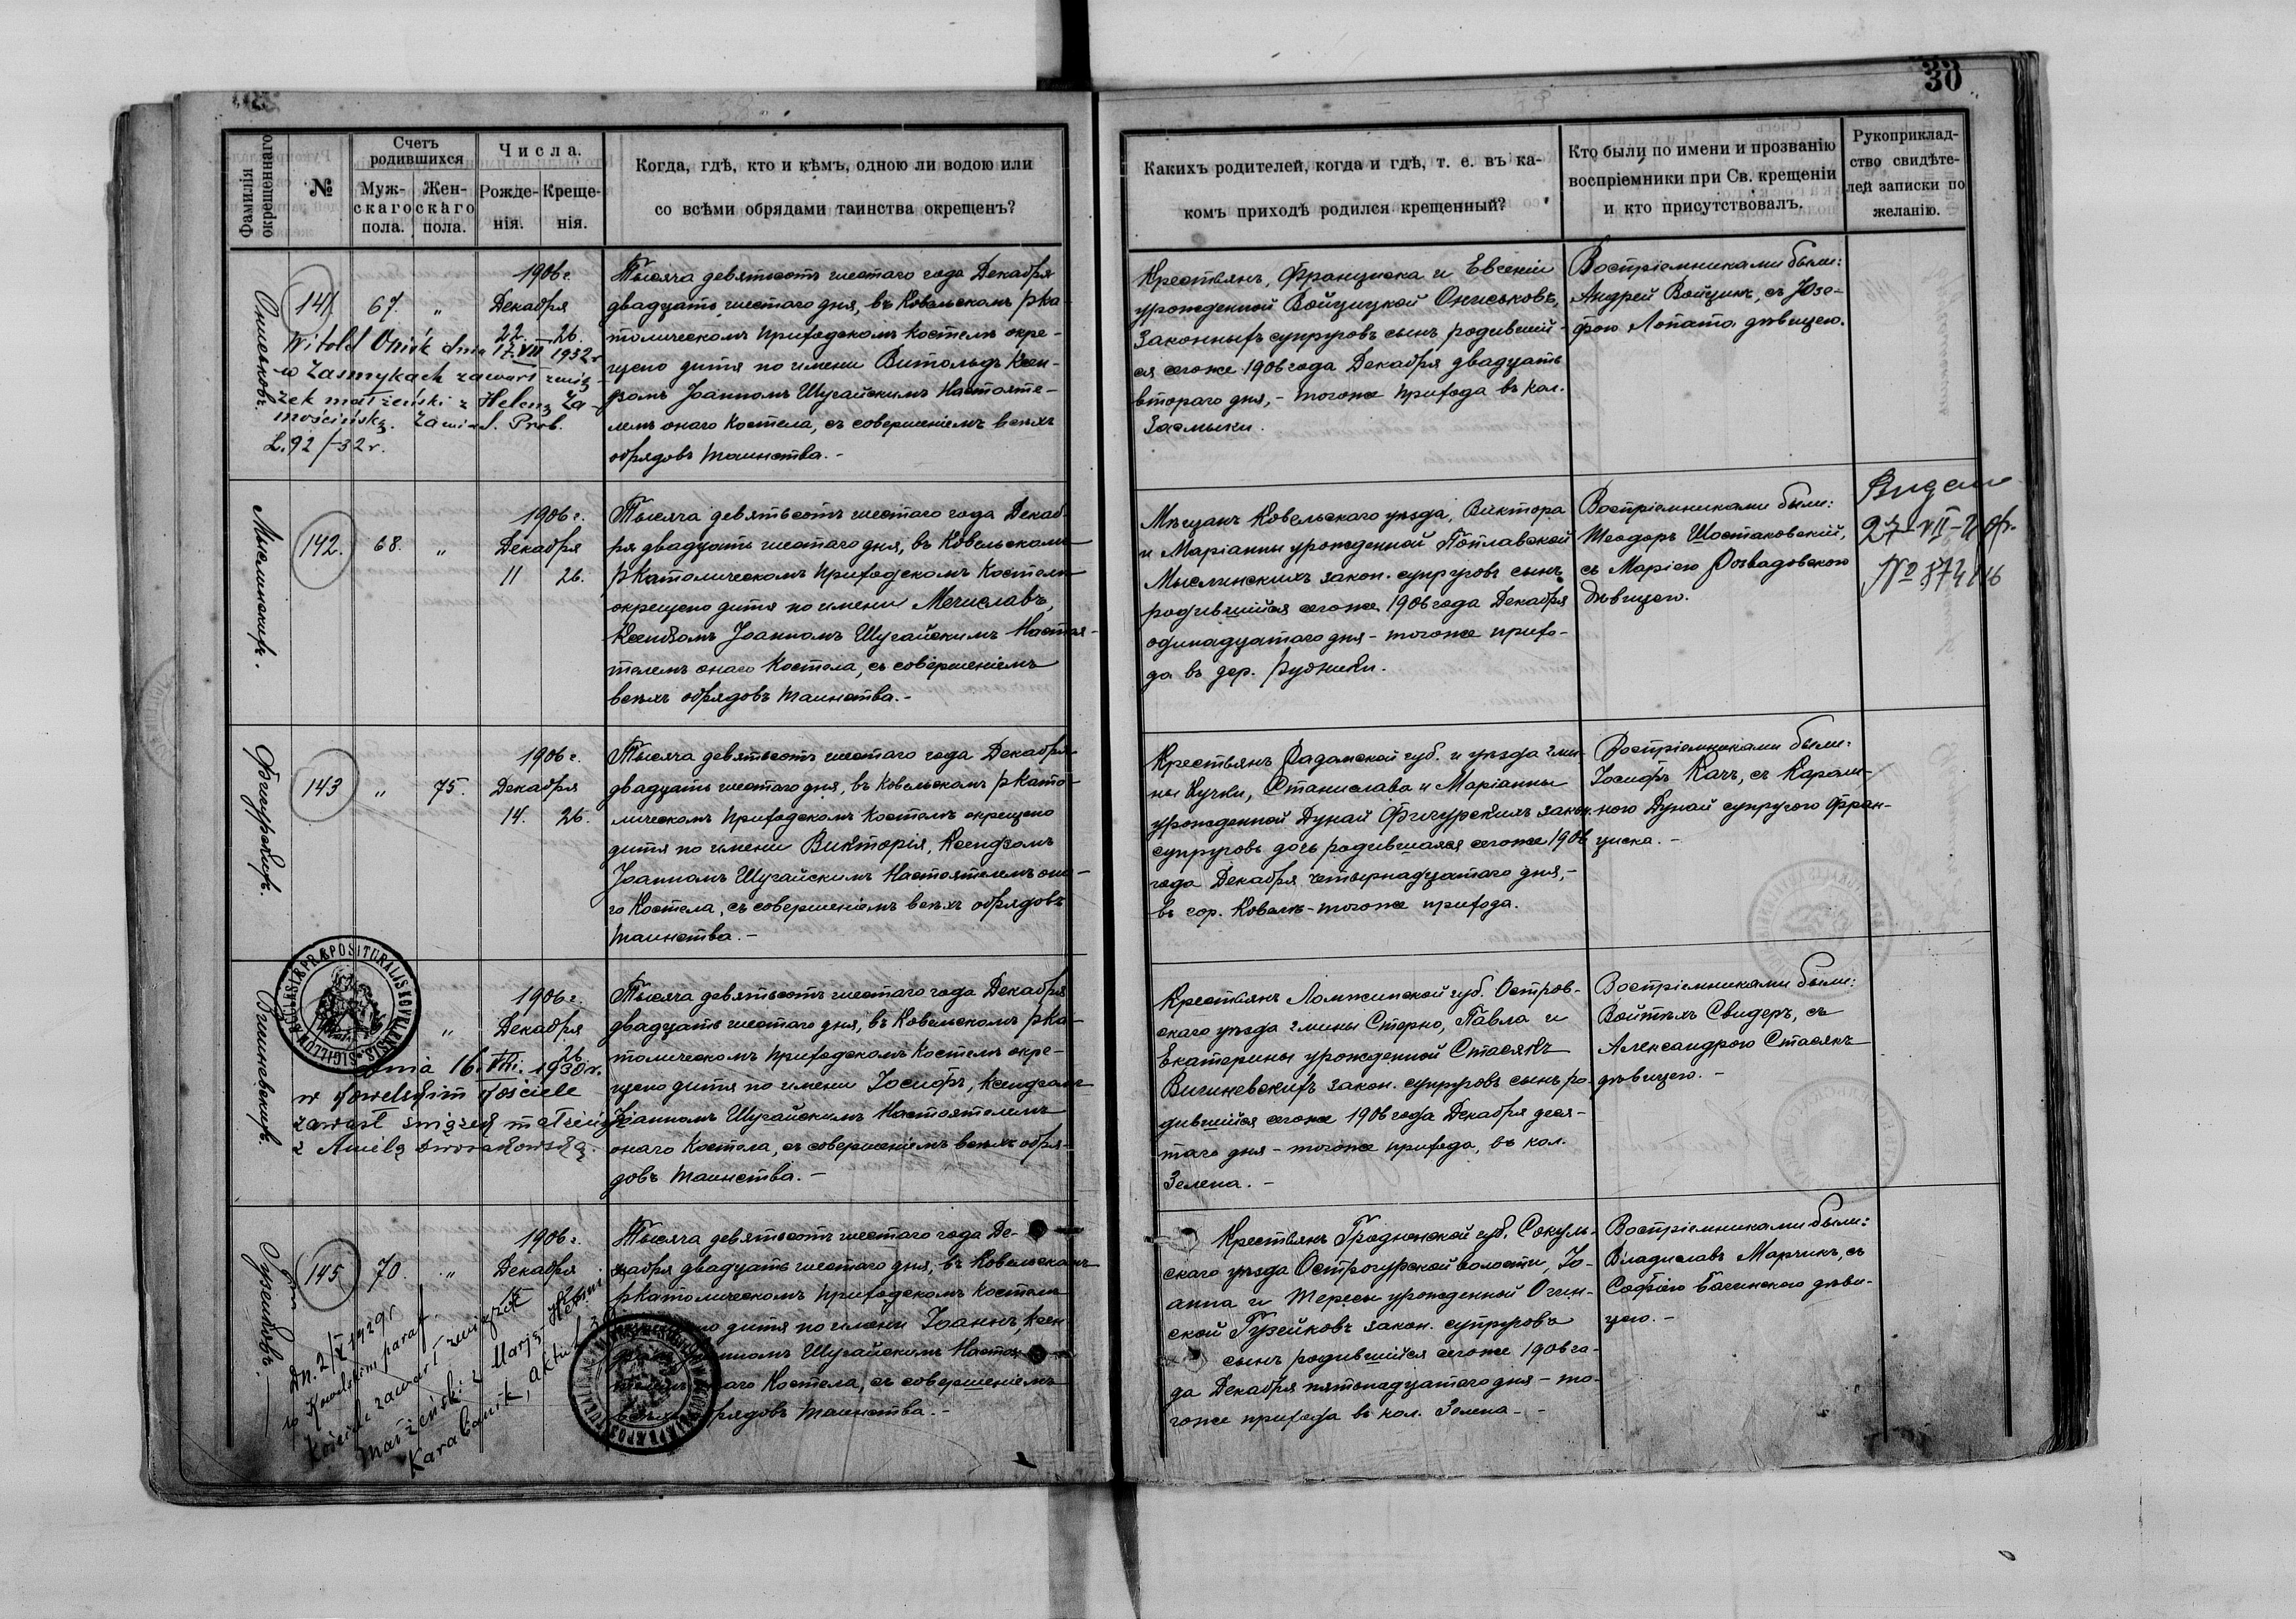 30
Фамилія
окрещеннаго
№
Счетъ
родившихся
Муж-
скаго
пола.
Жен-
скаго
пола.
Числа.
Рожде-
нія.
Креще-
нія.
Когда, гдѣ, кто и кѣмъ, одною ли водою или
со всѣми обрядами таинства окрещенъ?
Какихъ родителей, когда и гдѣ, т. е. въ ка-
комъ приходѣ родился крещенный?
Кто были по имени и прозванію
воспріемники при Св. крещеніи
и кто присутствовалъ.
Рукоприклад-
ство свидѣте-
лей записки по
желанію.
Ониськовъ.
141
67.
„
1906 г.
Декабря
22. 26.
Witold Onisk dnia 17.VII 1932 r
w Zasmykach zawarł zwią-
zek małżeński z Heleną Za-
mościńską. Prob.
L. 92/32 r.
Тысяча девятьсотъ шестаго года Декабря
двадцать шестаго дня, въ Ковельскомъ рка-
толическомъ приходскомъ костелѣ окре-
щено дитя по имени Витольдъ Ксен-
дзомъ Іоанномъ Шугайскимъ Настояте-
лемъ онаго Костела, съ совершеніемъ всѣхъ
обрядовъ таинства.-
Крестьянъ, Франциска и Евгеніи
урожденной Войцицкой Ониськовъ,
законныхъ супруговъ сынъ родившій-
ся сегоже 1906 года Декабря двадцать
втораго дня,- тогоже прихода въ кол.
Засмыки.
Воспріемниками были:
Андрей Войцикъ, съ Юзе-
фою Лопата дѣвицею.
Мыслинскихъ.
142.
68.
„
1906 г.
Декабря
11 26.
Тысяча девятьсотъ шестаго года Декаб-
ря двадцать шестаго дня, въ Ковельскомъ
ркатолическомъ приходскомъ костелѣ
окрещено дитя по имени Мечиславъ,
Ксендзомъ Іоанномъ Шугайскимъ Настоя-
телемъ онаго Костела, съ совершеніемъ
всѣхъ обрядовъ таинства.-
Мѣщанъ Ковельскаго уѣзда, Виктора
и Маріанны урожденной Поплавской
Мыслинскихъ закон. супруговъ сынъ
родившійся сегоже 1906 года Декабря
одинадцатаго дня- тогоже прихо-
да въ дер. Рудники.
Воспріемниками были:
Теодоръ Шостаковскій,
съ Маріею Розвадовскою
дѣвицею.
27-VII-
№
Фигурскихъ.
143
„
75.
1906 г.
Декабря
14. 26.
Тысяча девятьсотъ шестаго года Декабря
двадцать шестаго дня, въ Ковельскомъ ркато-
лическомъ приходскомъ костелѣ окрещено
дитя по имени Викторія, Ксендзомъ
Іоанномъ Шугайскимъ Настоятелемъ она-
го Костела, съ совершеніемъ всѣхъ обрядовъ
таинства.-
Крестьянъ Радомской губ. и уѣзда гми-
ны Кучки, Станислава и Маріанны
урожденной Дунай Фигурскихъ закон.
супруговъ дочь родившаяся сегоже 1906
года Декабря четырнадцатаго дня,-
въ гор. Ковелѣ-тогоже прихода.
Воспріемниками были:
Іосифъ Качъ, съ Кароли-
ною Дунай супругою Фран-
циска.-
SIGILLUM ECCLESIÆ PRÆPOSITURALIS KOVELIENSIS
„
1906 г.
Декабря
26.
dnia 16.VIII. 1930 r.
w Kowelskim Kościele
zawarł związek małżeńs.
z Anielą
Тысяча девятьсотъ шестаго года Декабря
двадцать шестаго дня, въ Ковельскомъ рка-
толическомъ приходскомъ костелѣ окре-
щено дитя по имени Іосифъ, Ксендзомъ
Іоанномъ Шугайскимъ Настоятелемъ
онаго Костела, съ совершеніемъ всѣхъ обря-
довъ таинства.-
Крестьянъ Ломжинской губ. Остров-
скаго уѣзда гмины Стерно, Павла и
Екатерины урожденной Стасякъ
закон. супруговъ сынъ ро-
дившійся сегоже 1906 года Декабря деся-
таго дня- тогоже прихода, въ кол.
Зелена.-
Воспріемниками были:
Войтѣхъ Свидеръ, съ
Александрою Стасякъ
дѣвицею.-
Гузейковъ.
145
70.
„
1906 г.
Декабря
Dn. 2/X 1929 r
w Kowelskim paraf.
Kościele zawarł związek
małżeński z Marją
Karabanik,
Тысяча девятьсотъ шестаго года Де-
кабря двадцать шестаго дня, въ Ковельскомъ
ркатолическомъ приходскомъ костелѣ
дитя по имени Іоаннъ, Ксен-
Шугайскимъ Настоя-
Костела, съ совершеніемъ
таинства.-
Крестьянъ Гродненской губ. Сокуль-
скаго уѣзда Острогурской волости, Іо-
анна и Тересы урожденной Огин-
ской Гузейковъ закон. супруговъ
сынъ родившійся сегоже 1906 го-
да Декабря пятьнадцатаго дня- то-
гоже прихода въ кол. Зелена.-
Воспріемниками были:
Владиславъ Марчикъ, съ
Софіею Бачинскою дѣви-
цею.-